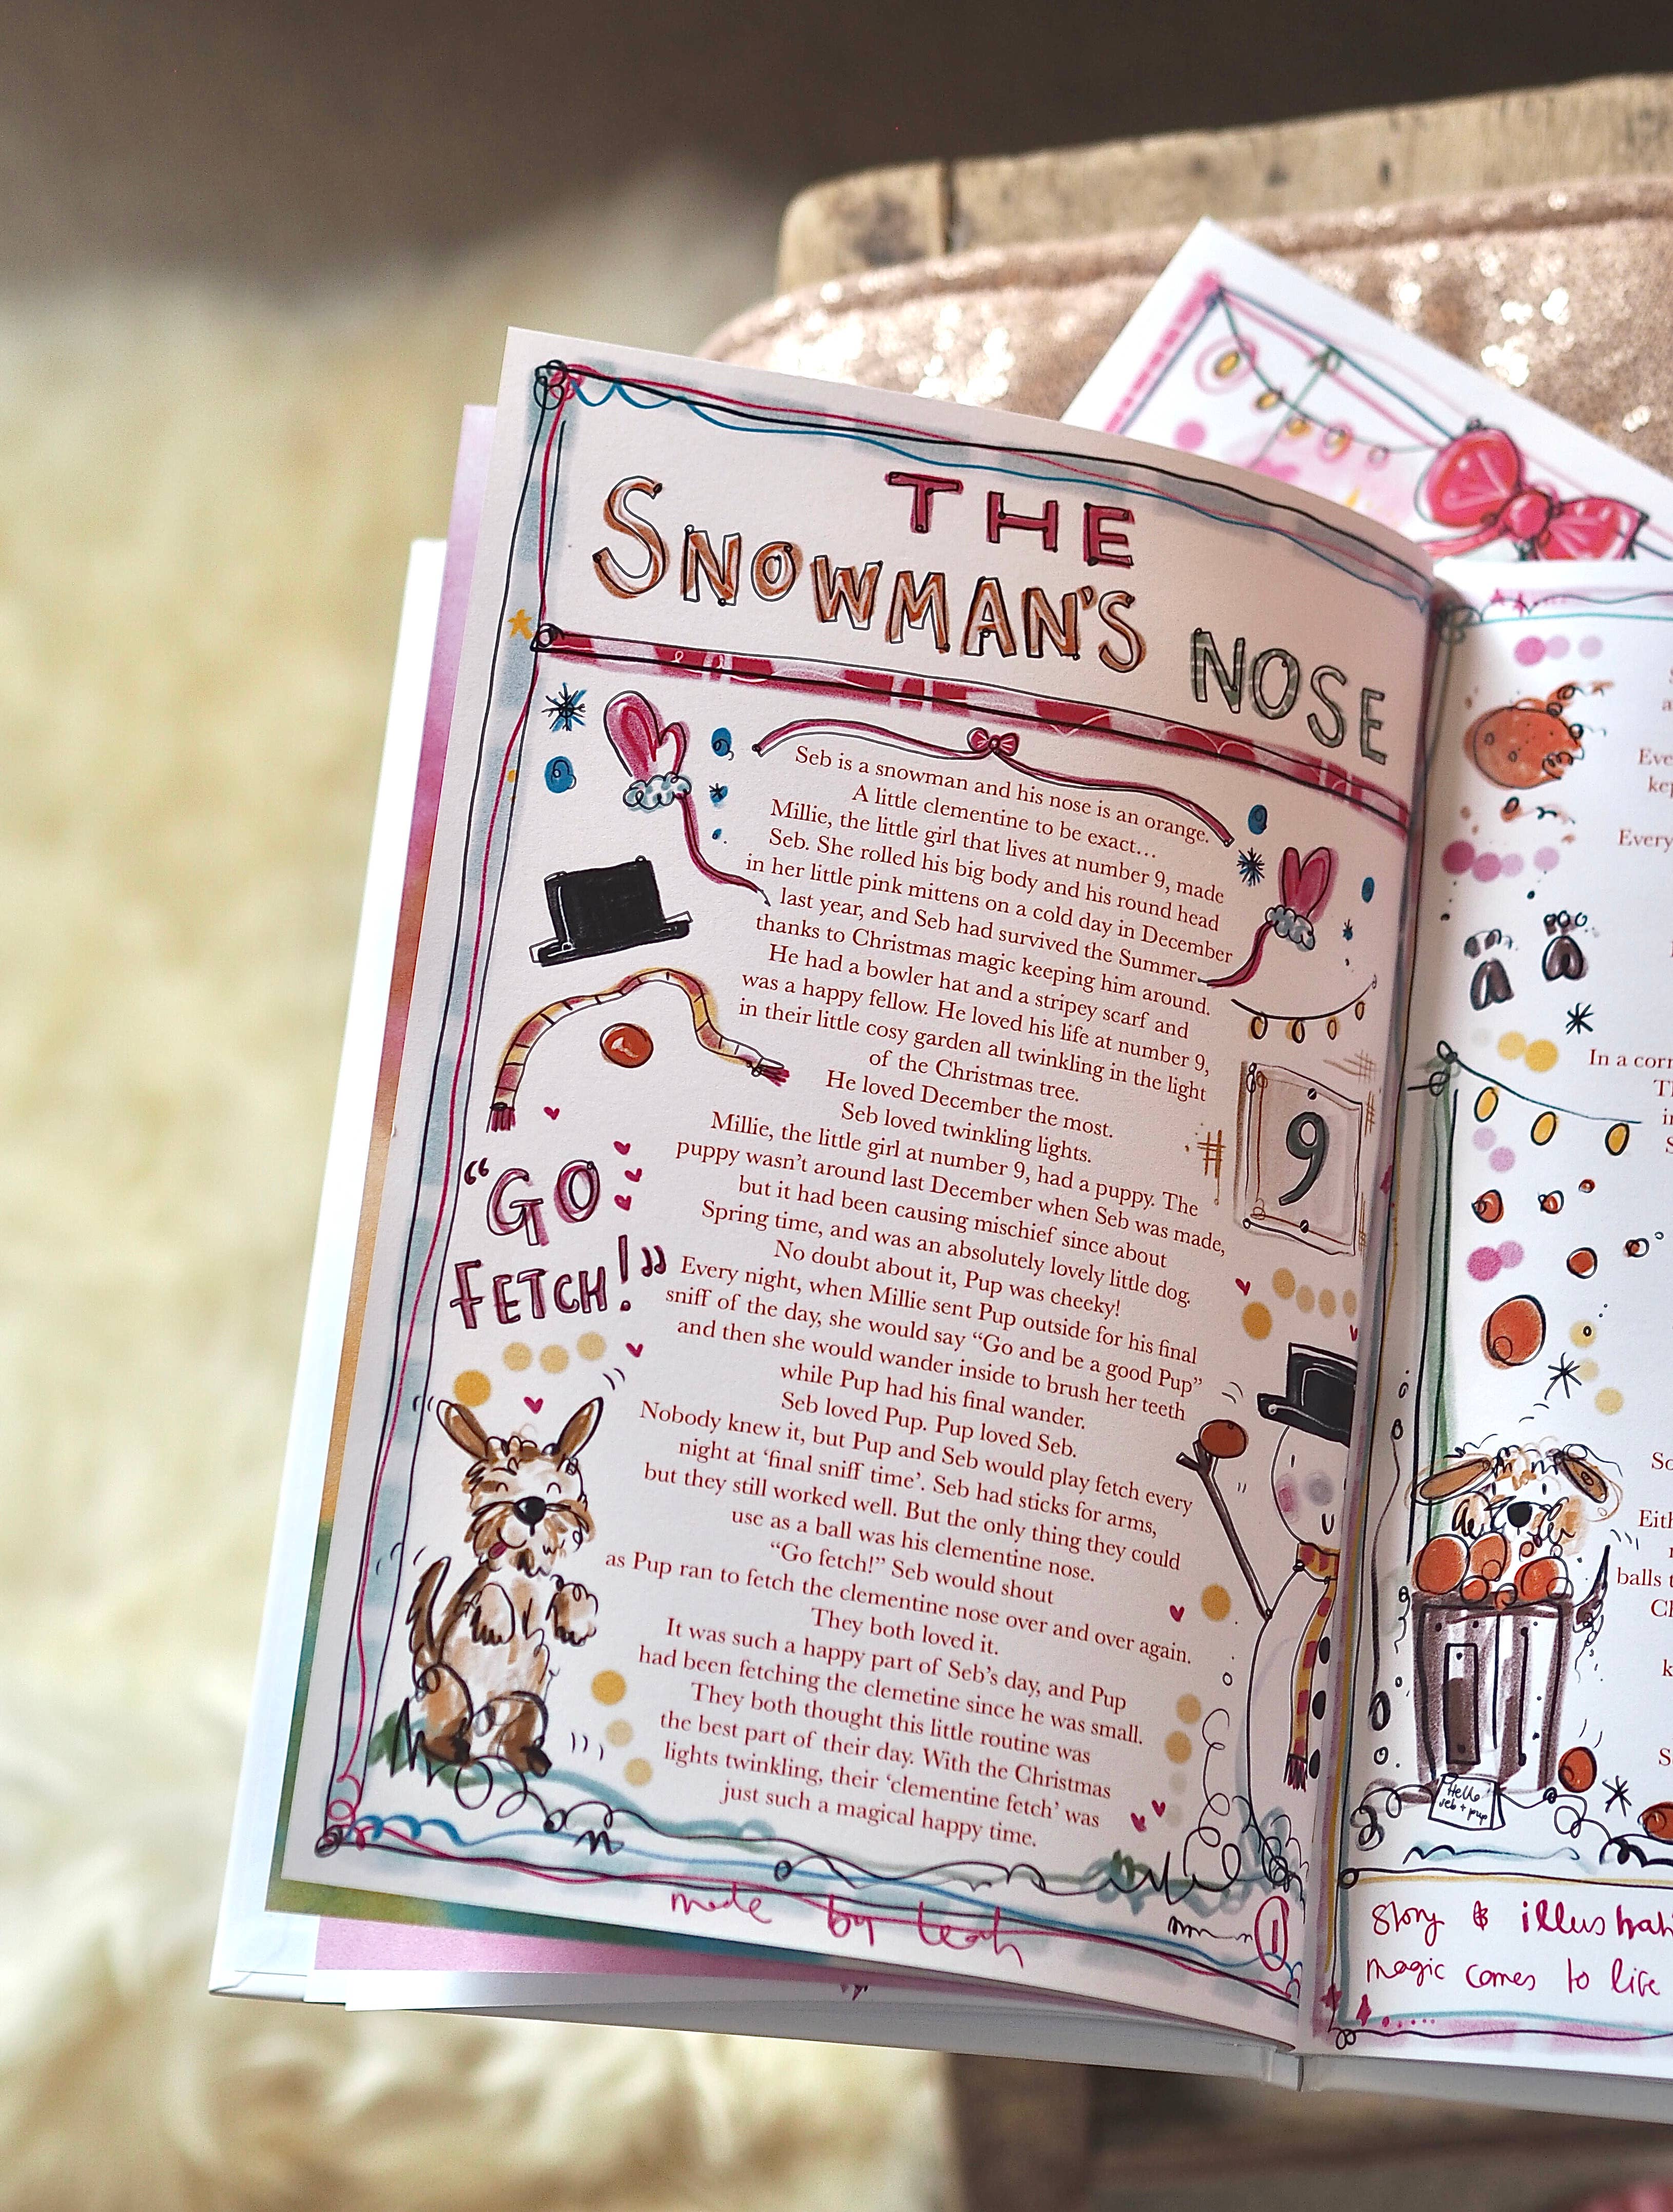 THE
SNOWMAN'S NOSE
Seb is a snowman and his nose is an orange.
A little clementine to be exact...
Millie, the little girl that lives at number 9, made
Seb. She rolled his big body and his round head
in her little pink mittens on a cold day in December
last year, and Seb had survived the Summer
thanks to Christmas magic keeping him around.
He had a bowler hat and a stripey scarf and
was a happy fellow. He loved his life at number 9,
in their little cosy garden all twinkling in the light
of the Christmas tree.
He loved December the most.
Seb loved twinkling lights.
Millie, the little girl at number 9, had a puppy. The
puppy wasn't around last December when Seb was made,
but it had been causing mischief since about
Spring time, and was an absolutely lovely little dog.
No doubt about it, Pup was cheeky!
Every night, when Millie sent Pup outside for his final
sniff of the day, she would say “Go and be a good Pup”
and then she would wander inside to brush her teeth
while Pup had his final wander.
Seb loved Pup. Pup loved Seb.
Nobody knew it, but Pup and Seb would play fetch every
night at ‘final sniff time’. Seb had sticks for arms,
but they still worked well. But the only thing they could
use as a ball was his clementine nose.
“Go fetch!” Seb would shout
as Pup ran to fetch the clementine nose over and over again.
They both loved it.
It was such a happy part of Seb's day, and Pup
had been fetching the clemetine since he was small.
They both thought this little routine was
the best part of their day. With the Christmas
lights twinkling, their ‘clementine fetch’ was
just such a magical happy time.
# 9
“GO
FETCH!”
made by leah
1
Every
In a corn
balls t
Hello
seb + pup
Story & illustrati
magic comes to life